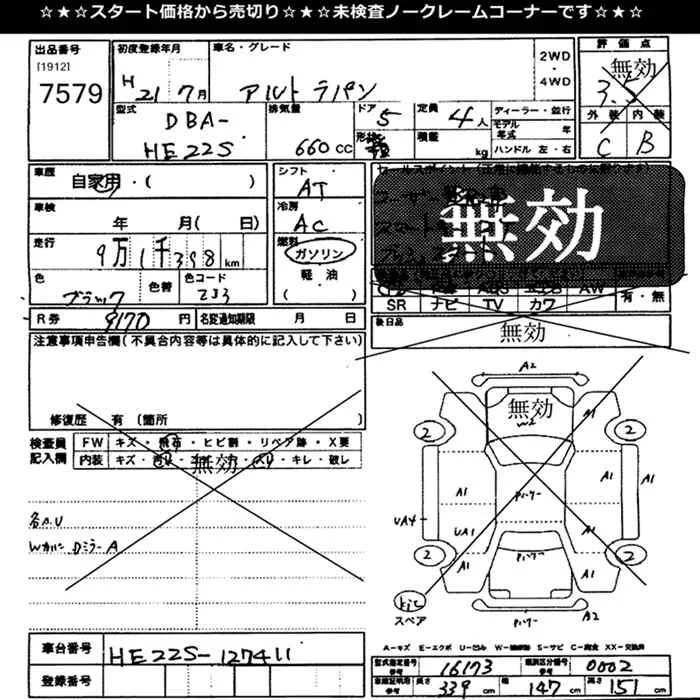 ☆★☆スタート価格から売切り☆★☆未検査ノークレームコーナーです☆★☆
出品番号
[1912]
7579
初度登録年月
H 21 7月
車名・グレード
アルト ラパン
2WD
・
4WD
評価点
無効
3.5
外装 内装
C B
型式
DBA-
HE22S
排気量
660cc
ドア
5
形状
定員
4人
積載
kg
ディーラー・並行
モデル年式 年
ハンドル 左・右
車歴
自家用・( )
車検
年 月( 日)
走行
9万1千398km
色
ブラック
色替
色コード
ZJ3
シフト
AT
冷房
AC
燃料
ガソリン
軽油
( )
無効
SR ナビ TV カワ
AW
有・無
R券 9170円
名変通知期限 月 日
後日品
無効
注意事項申告欄(不具合内容等は具体的に記入して下さい)
修復歴 有(箇所 )
検査員
記入欄
FW キズ・飛石・ヒビ割・リペア跡・X要
内装 キズ・
キレ・破レ
無効
各A.U
Wカバー DミラーA
A2
無効
W2
A1
2
2
A1
A1
A1
パーワー
UA4
UA1
A1
2
2
パーワー
A1
A1
スペア
パーワー
A2
A-キズ E-エクボ U-凹ミ W-補修跡 S-サビ C-腐食 XX-交換済
車台番号
HE22S-127411
登録番号
型式指定番号
参考
16173
類別区分番号
参考
0002
車検証明用
参考
長さ
339cm
幅
147cm
高さ
151cm